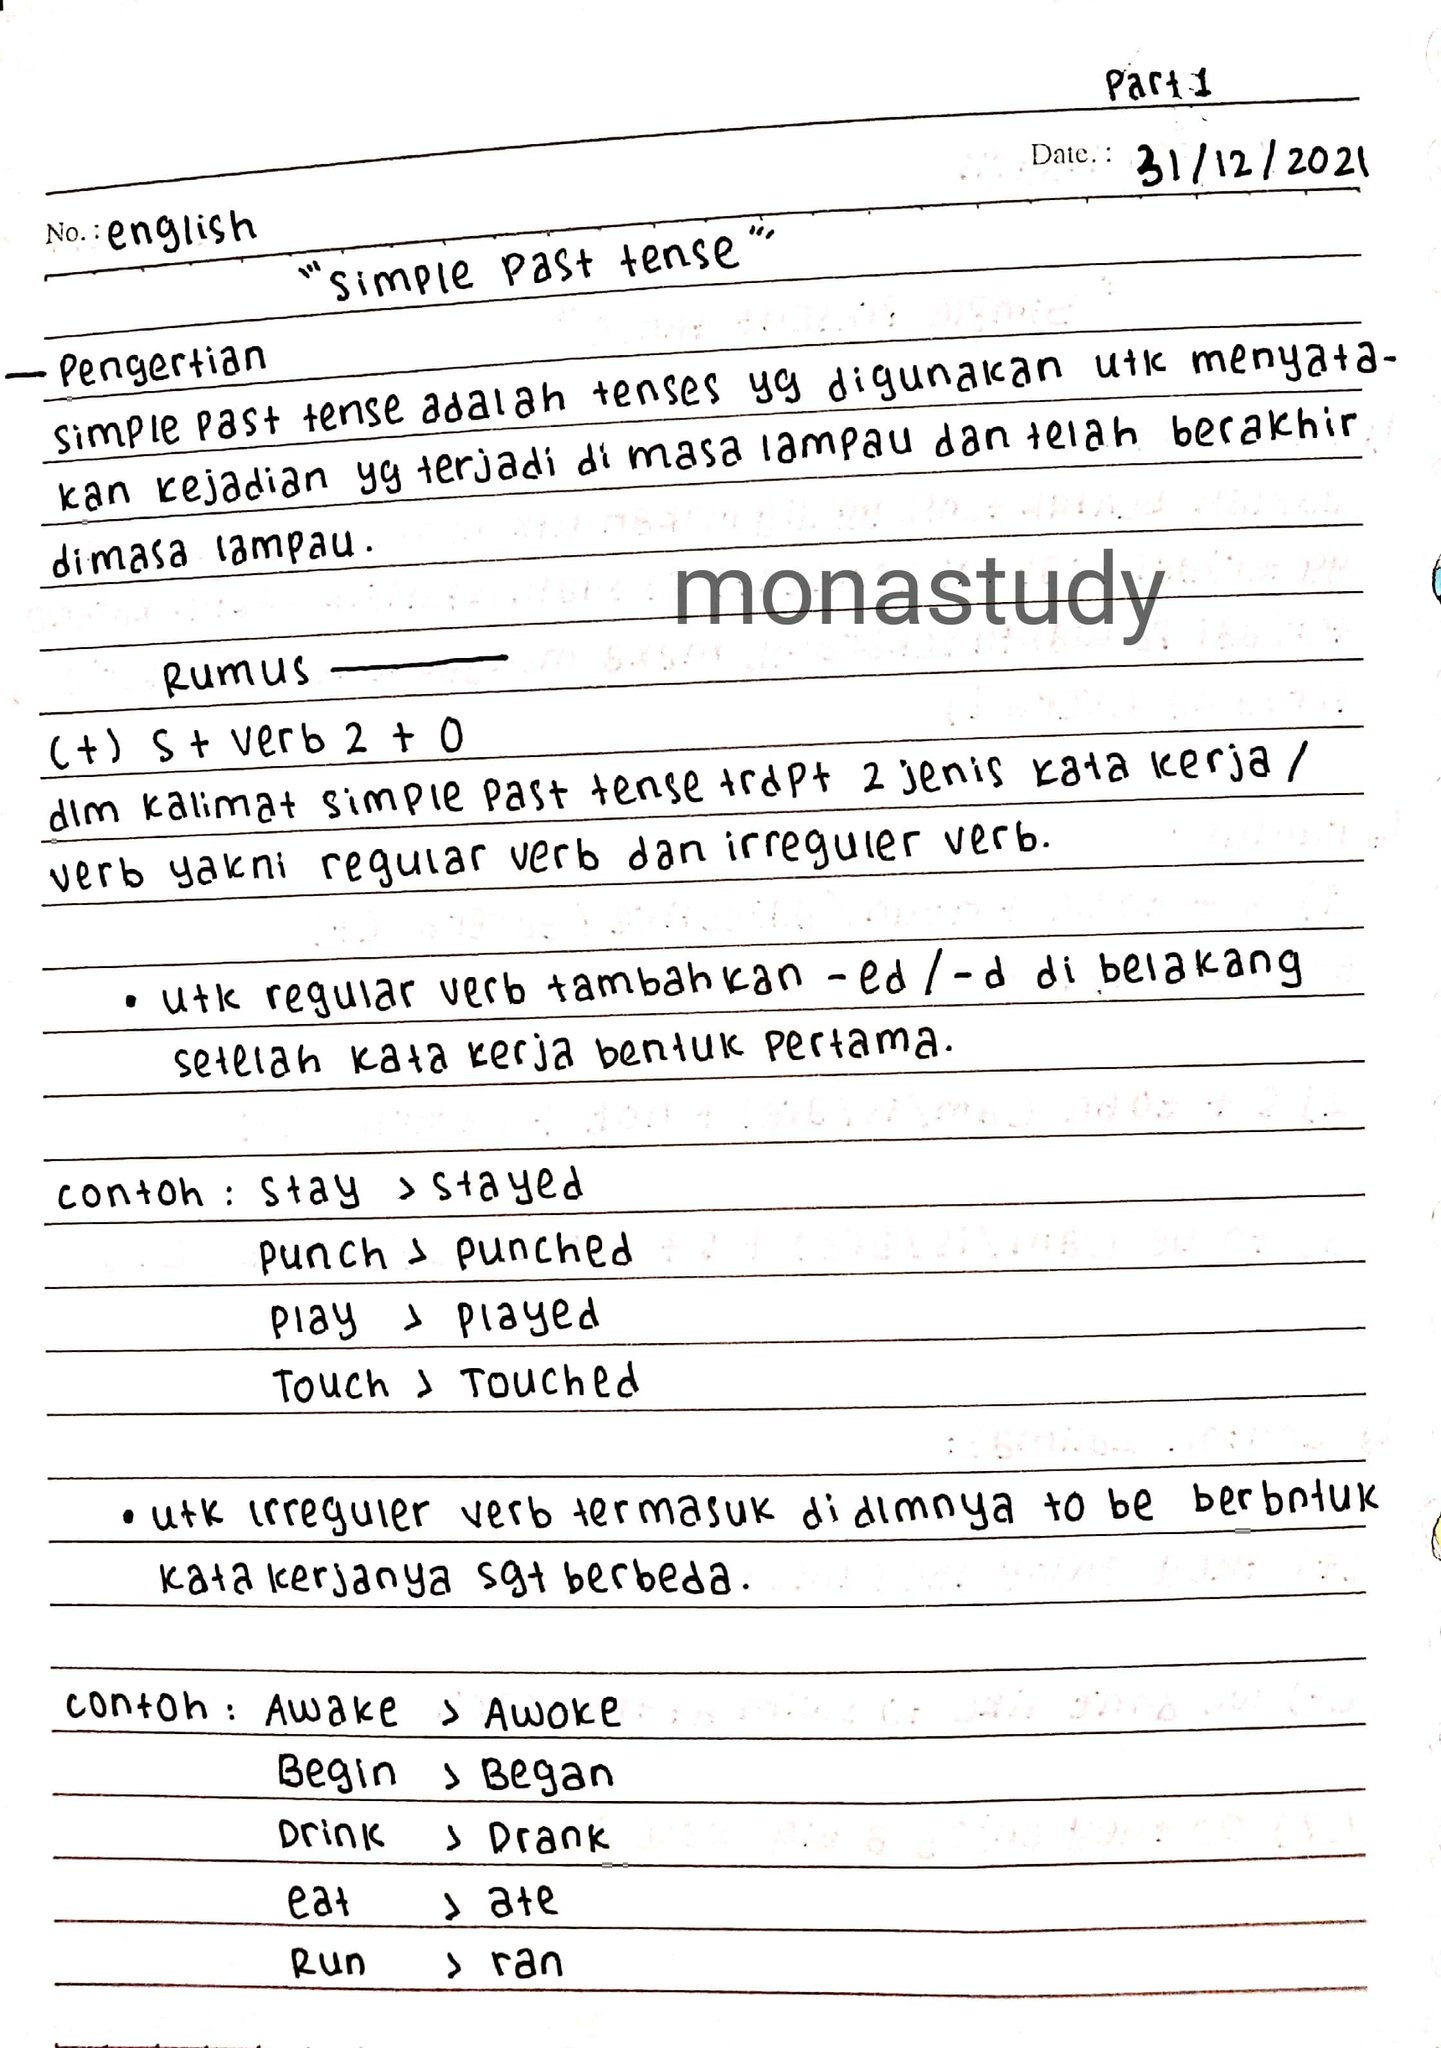 Part 1
Date. : 31/12/2021
No. : english
"'simple past tense"'
— Pengertian
simple past tense adalah tenses yg digunakan utk menyata-
kan kejadian yg terjadi di masa lampau dan telah berakhir
dimasa lampau.
monastudy
Rumus —
(+) S + Verb 2 + O
dlm kalimat simple past tense trdpt 2 jenis kata kerja /
verb yakni regular verb dan irreguler verb.
• utk regular verb tambahkan -ed / -d di belakang
setelah kata kerja bentuk pertama.
contoh : stay > stayed
Punch > punched
Play > Played
Touch > Touched
• utk irreguler verb termasuk di dlmnya to be berbntuk
kata kerjanya sgt berbeda.
contoh : Awake > Awoke
Begin > Began
Drink > Drank
eat > ate
Run > ran